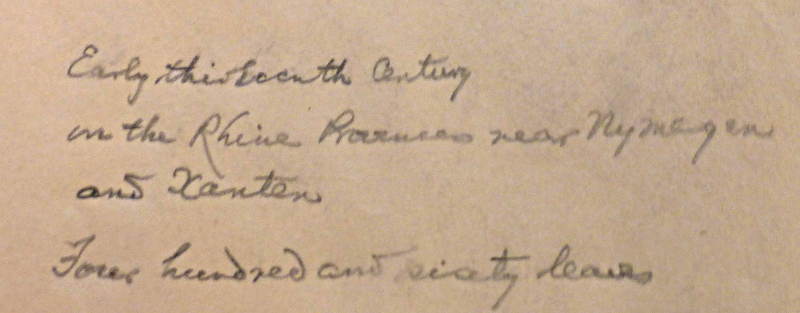 Early thirteenth Century
in the Rhine Provinces near Nymegen
and Xanten
Four hundred and sixty leaves